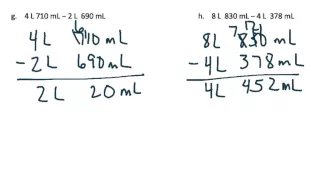 g. 4 L 710 mL – 2 L 690 mL
4 L 710 mL
- 2 L 690 mL
2 L 20 mL
h. 8 L 830 mL – 4 L 378 mL
7 12 1
8L 830 mL
- 4L 378 mL
4L 452 mL